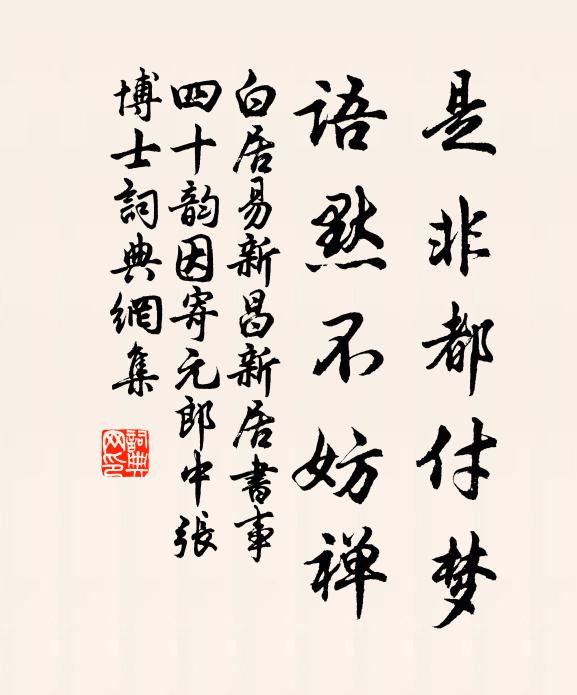 是非都付梦
语默不妨禅
白居易新昌新居書事
四十韵因寄元郎中張
博士詞典網集
詞典网印